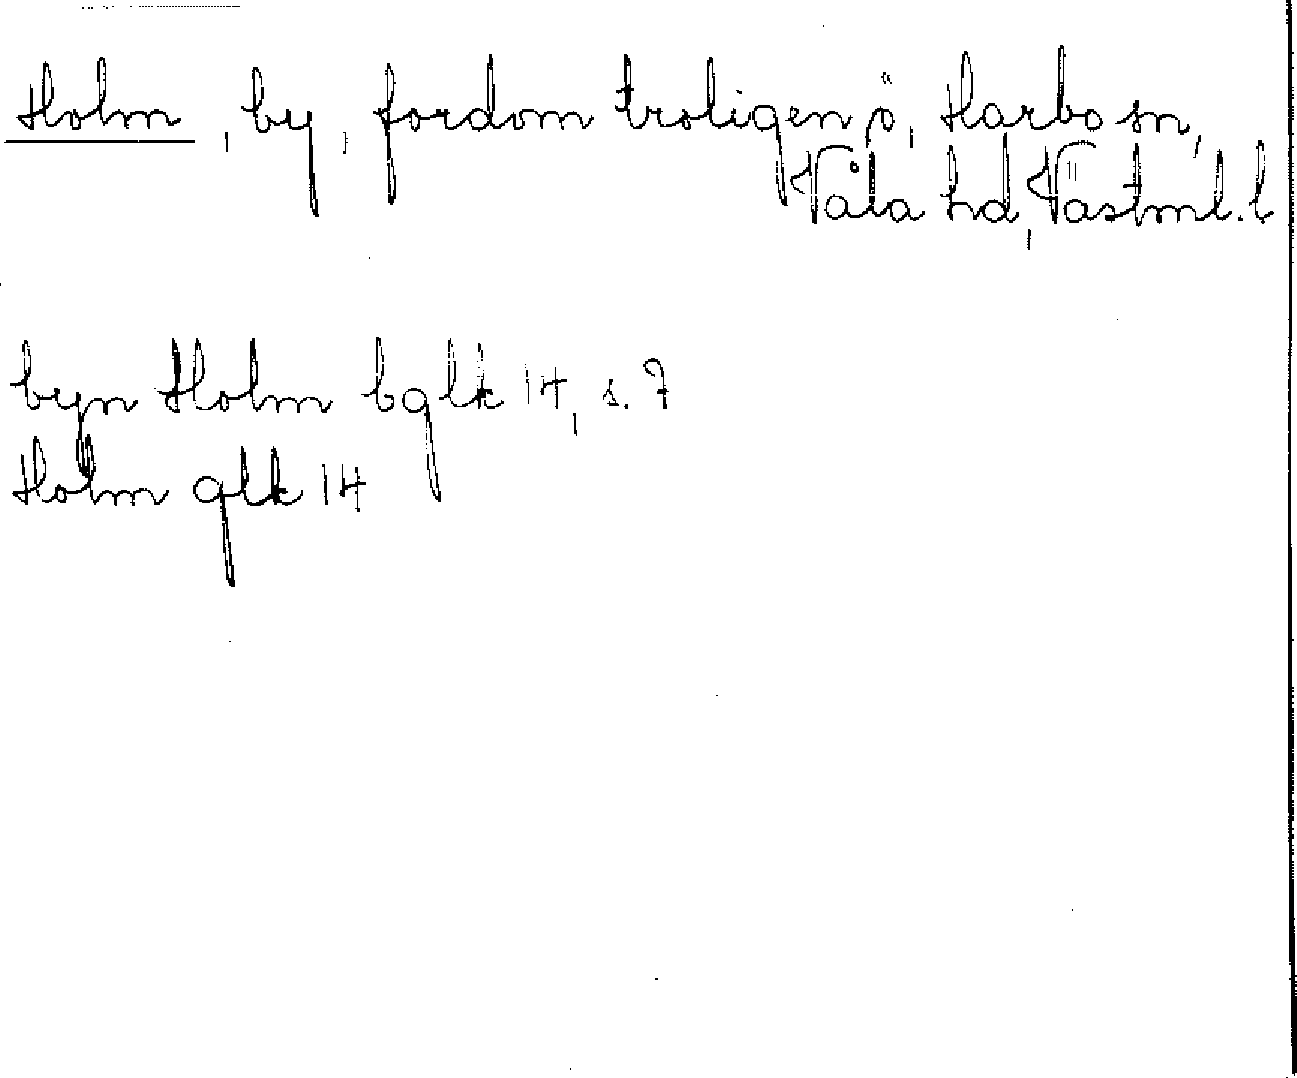 Holm, by, fordom troligen ö, Harbo sn,
Våla hd, Västml. l
byn Holm bglk 14, s. 7
Holm glk 14